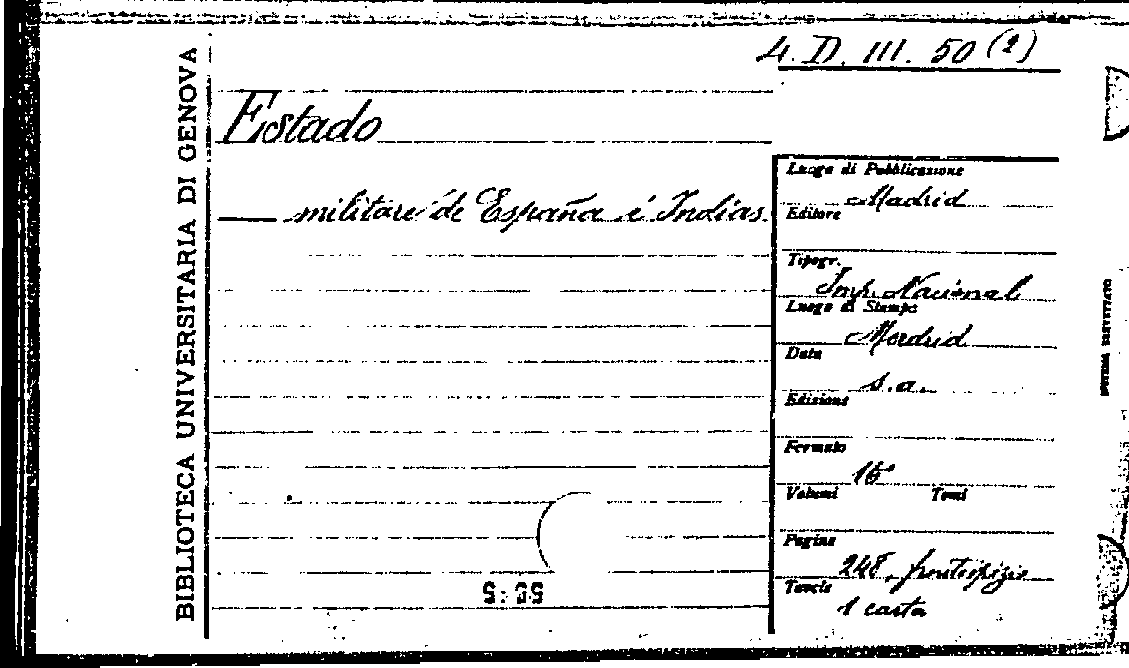 4. D. III. 50 (2)
BIBLIOTECA UNIVERSITARIA DI GENOVA
Estado
— militare de España é Indias.
Luogo di Pubblicazione
Madrid
Editore
Tipogr.
Imp. Nacional
Luogo di Stampa
Madrid
Data
s.a.
Edizione
Formato
16°
Volumi Tomi
Pagine
248, frontespizio
Tavole
1 carta